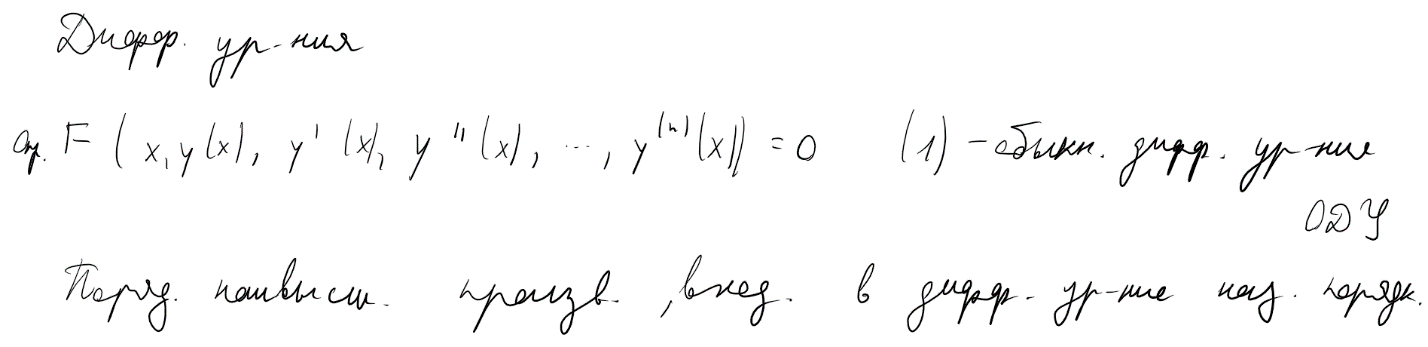 Дифф. ур-ния
Опр. F (x, y(x), y'(x), y''(x), ..., y^(n)(x)) = 0 (1) - обыкн. дифф. ур-ние
ОДУ
Поряд. наивысш. произв., вход. в дифф. ур-ние наз. порядк.